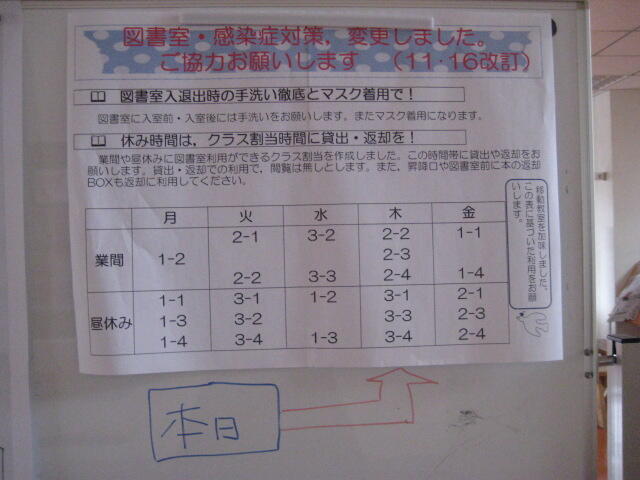 図書室・感染症対策，変更しました。
ご協力お願いします　（11・16改訂）
図書室入退出時の手洗い徹底とマスク着用で！
図書室に入室前・入室後には手洗いをお願いします。またマスク着用になります。
休み時間は，クラス割当時間に貸出・返却を！
業間や昼休みに図書室利用ができるクラス割当を作成しました。この時間帯に貸出や返却をお
願いします。貸出・返却での利用で，閲覧は無しとします。また，昇降口や図書室前に本の返却
BOXも返却に利用してください。
月 火 水 木 金
業間
1-2
2-1
2-2
3-2
3-3
2-2
2-3
2-4
1-1
1-4
昼休み
1-1
1-3
1-4
3-1
3-2
3-4
1-2
1-3
3-1
3-3
3-4
2-1
2-3
2-4
移動教室を加味しました。
この表に基づいた利用をお願
いします。
本日